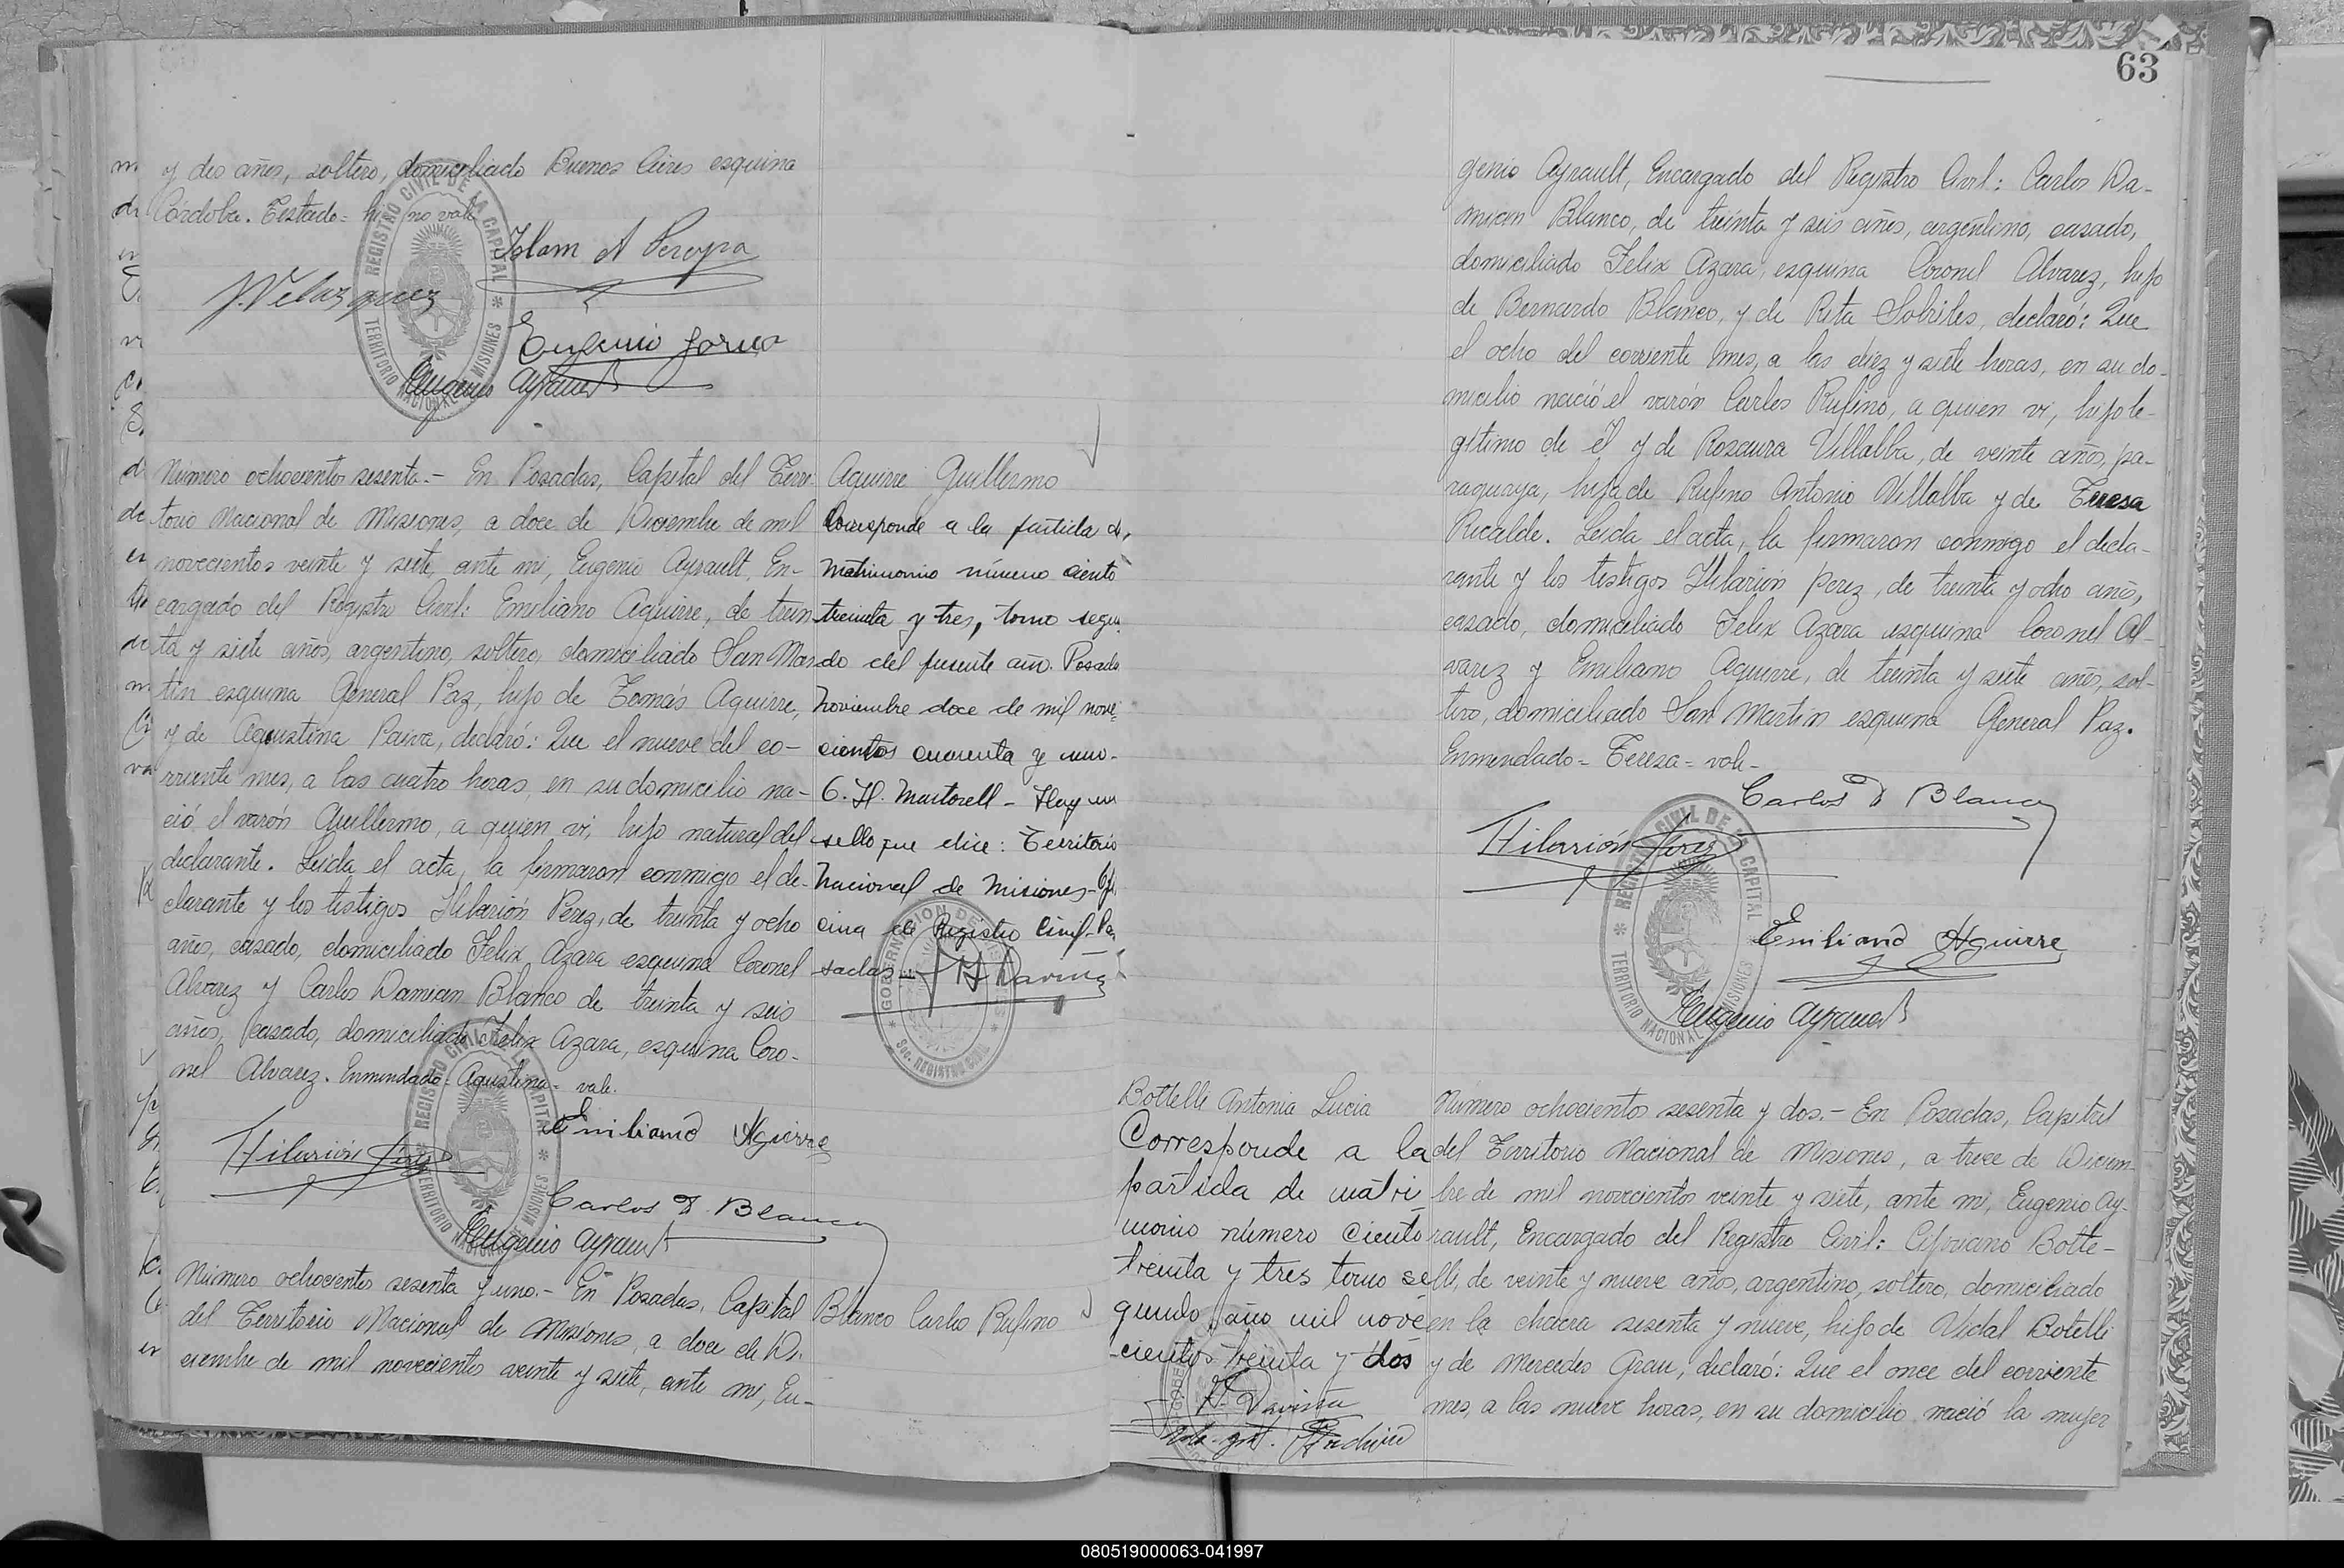 y dos años, soltero, domiciliado Buenos Aires esquina
Córdoba. Testado = hi no vale
Islam A Pereyra
J. Velazquez
Eugenio
Eugenio Ayrault
REGISTRO CIVIL DE LA CAPITAL
TERRITORIO NACIONAL DE MISIONES
Número ochocientos sesenta.- En Posadas, Capital del Terri
torio Nacional de Misiones, a doce de Diciembre de mil
novecientos veinte y siete, ante mi, Eugenio Ayrault, En-
cargado del Registro Civil: Emiliano Aguirre, de trein
ta y siete años, argentino, soltero, domiciliado San Mar
tín esquina General Paz, hijo de Tomás Aguirre,
y de Agustina Paiva, declaró: Que el nueve del co-
rriente mes, a las cuatro horas, en su domicilio na-
ció el varón Guillermo, a quien vi, hijo natural del
declarante. Leida el acta, la firmaron conmigo el de-
clarante y los testigos Hilarión Perez, de treinta y ocho
años, casado, domiciliado Felix Azara esquina Coronel
Alvarez y Carlos Damian Blanco de treinta y seis
años, casado, domiciliado Felix Azara, esquina Coro-
nel Alvarez. Enmendado - Agustina - vale.
Aguirre Guillermo
Corresponde a la partida de
matrimonio número ciento
treinta y tres, tomo segun
do del presente año. Posadas
Noviembre doce de mil nove-
cientos cuarenta y uno.
G. H. Martorell - Hay un
sello que dice: Territorio
Nacional de Misiones - Ofi
cina de Registro Civil - Po
sadas -
GOBERNACION DE MISIONES
Sec. REGISTRO CIVIL
Emiliano Aguirre
Hilarión Perez
Carlos D. Blanco
Eugenio Ayrault
REGISTRO CIVIL DE LA CAPITAL
TERRITORIO NACIONAL DE MISIONES
Número ochocientos sesenta y uno.- En Posadas, Capital
del Territorio Nacional de Misiones, a doce de Di-
ciembre de mil novecientos veinte y siete, ante mi, Eu-
Blanco Carlos Rufino
63
genio Ayrault, Encargado del Registro Civil: Carlos Da-
mian Blanco, de treinta y seis años, argentino, casado,
domiciliado Felix Azara, esquina Coronel Alvarez, hijo
de Bernardo Blanco, y de Rita Sobriles, declaró: Que
el ocho del corriente mes, a las diez y siete horas, en su do-
micilio nació el varón Carlos Rufino, a quien vi, hijo le-
gítimo de él y de Rosaura Villalba, de veinte años, pa-
raguaya, hija de Rufino Antonio Villalba y de Teresa
Ricalde. Leida el acta, la firmaron conmigo el decla-
rante y los testigos Hilarion Perez, de treinta y ocho años,
casado, domiciliado Felix Azara esquina Coronel Al-
varez y Emiliano Aguirre, de treinta y siete años, sol-
tero, domiciliado San Martin esquina General Paz.
Enmendado - Teresa = vale -
Carlos D Blanco
Hilarión Perez
Emiliano Aguirre
Eugenio Ayrault
REGISTRO CIVIL DE LA CAPITAL
TERRITORIO NACIONAL DE MISIONES
Bottelli Antonia Lucia
Corresponde a la
partida de matri
monio número ciento
treinta y tres tomo se
gundo año mil nove
cientos treinta y dos
Número ochocientos sesenta y dos.- En Posadas, Capital
del Territorio Nacional de Misiones, a trece de Diciem-
bre de mil novecientos veinte y siete, ante mi, Eugenio Ay-
rault, Encargado del Registro Civil: Cipriano Botte-
lli, de veinte y nueve años, argentino, soltero, domiciliado
en la chacra sesenta y nueve, hijo de Vidal Botelli
y de Mercedes Grau, declaró: Que el once del corriente
mes, a las nueve horas, en su domicilio nació la mujer
080519000063-041997